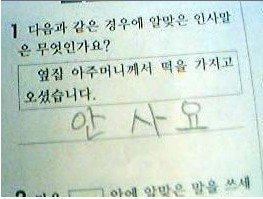 1 다음과 같은 경우에 알맞은 인사말
은 무엇인가요?
옆집 아주머니께서 떡을 가지고
오셨습니다.
안 사 요
안에 알맞은 말을 쓰세